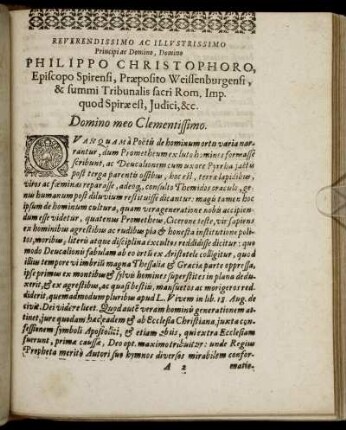 REVERENDISSIMO AC ILLVSTRISSIMO
Principi ac Domino, Domino
PHILIPPO CHRISTOPHORO,
Episcopo Spirensi, Præposito Weissenburgensi,
& summi Tribunalis sacri Rom. Imp.
quod Spiræ est, Judici, &c.
Domino meo Clementissimo.
QVANQUAM à Poëtis de hominum ortu varia nar-
rantur, dum Prometheum ex luto homines formasse
scribunt, ac Deucalionem cum uxore Pyrrha jactis
post terga parentis ossibus, hoc est, terra lapidibus,
viros ac fœminas reparasse, adeoq, consulto Themidos oraculo, ge-
nus humanum post diluvium restituisse dicantur: magis tamen hoc
ipsum de hominum cultura, quam vera generatione nobis accipien-
dum est videtur, quatenus Prometheus, Cicerone teste, vir sapiens
ex hominibus agrestibus ac rudibus pia & honesta institutione poli-
tos, moribus, literis atque disciplina excultos reddidisse dicitur: quo
modo Deucalioni fabulam ab eo orti ex Aristotele colligitur, quod
illius tempore vi imbrili magna Thessaliæ & Græcia parte oppressa,
ipse primus ex montibus & sylvis homines superstites in plana dedu-
xerit, & ex agrestibus, ac quasi bestiis, mansuetos ac morigeros red-
diderit, quemadmodum pluribus apud L. Vivem in lib. 18. Aug. de
civit. Dei videre licet. Quod autem veram hominis generationem at-
tinet, jure quodam hac eadem & ab Ecclesia Christiana, juxta con-
fessionem symboli Apostolici, & etiam aliis, qui extra Ecclesiam
fuerunt, prima causæ, Deo opt. maximo tribuitur: unde Regius
Propheta merito Autori suo hymnos diversos mirabilem confor-
A 2
matio-